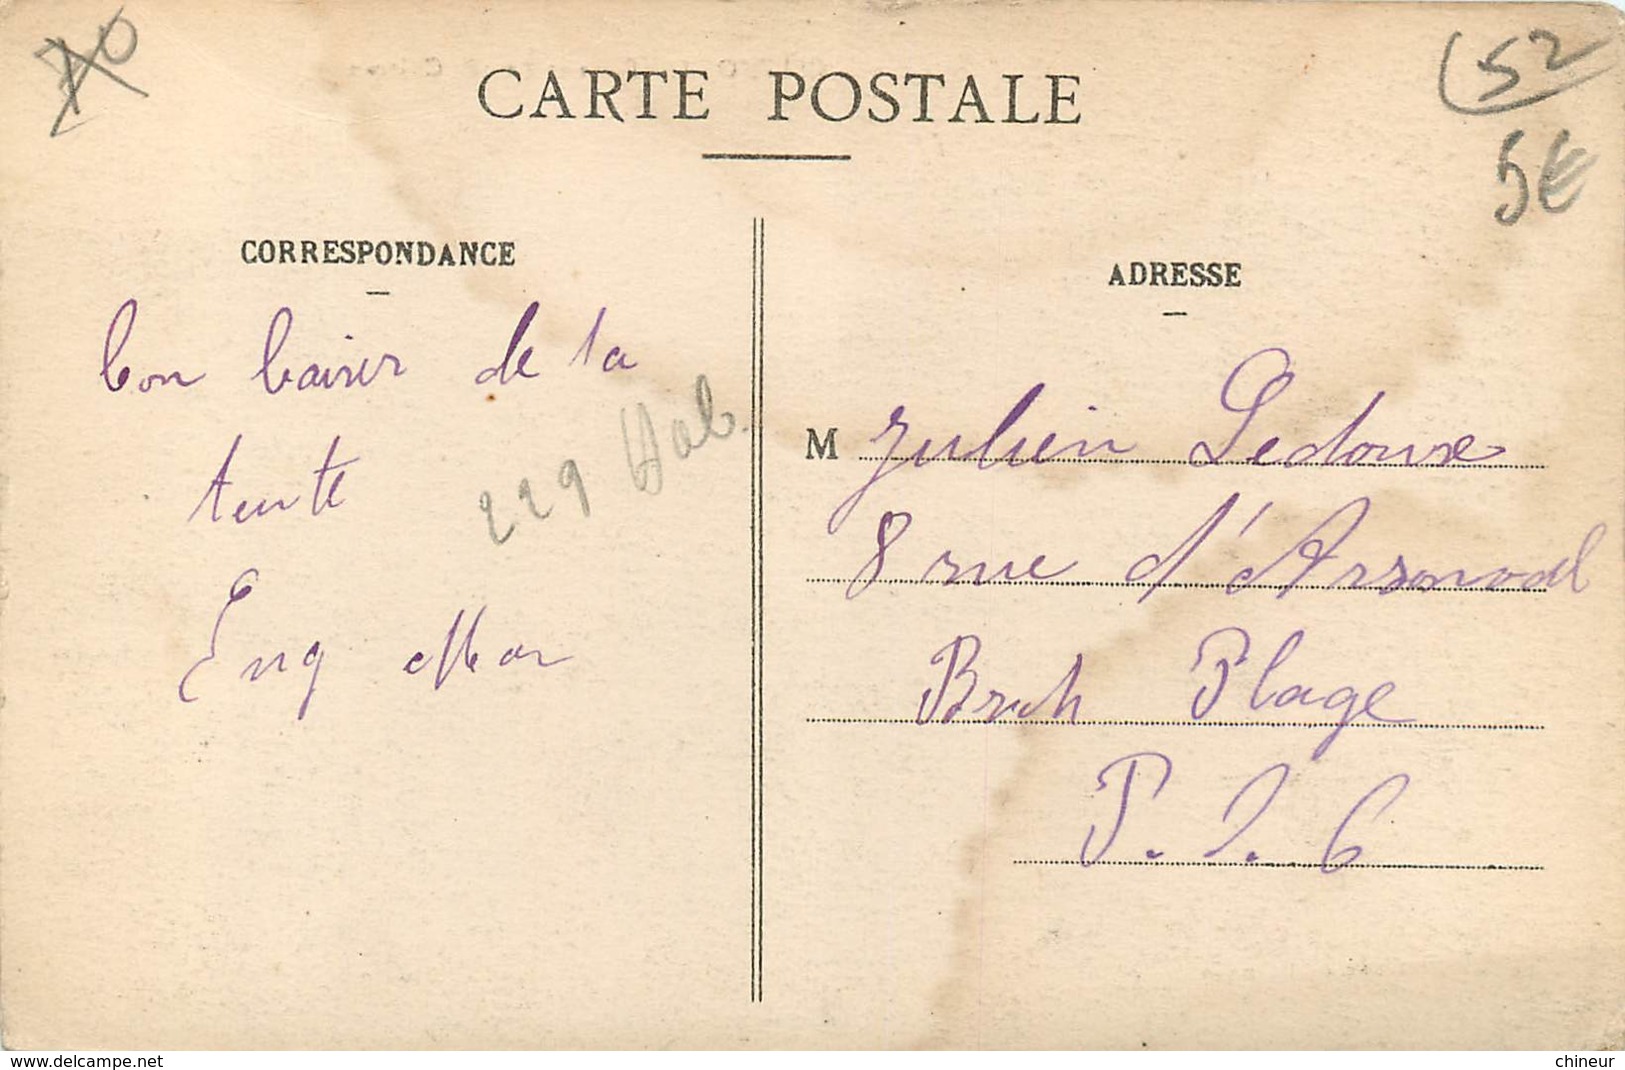 52
5€
CARTE POSTALE
CORRESPONDANCE
bon baiser de la
tente
229 Hab.
ADRESSE
M Julien Ledoux
8 rue d'Arsonval
Brech Plage
P. D. C
www.delcampe.net
chineur